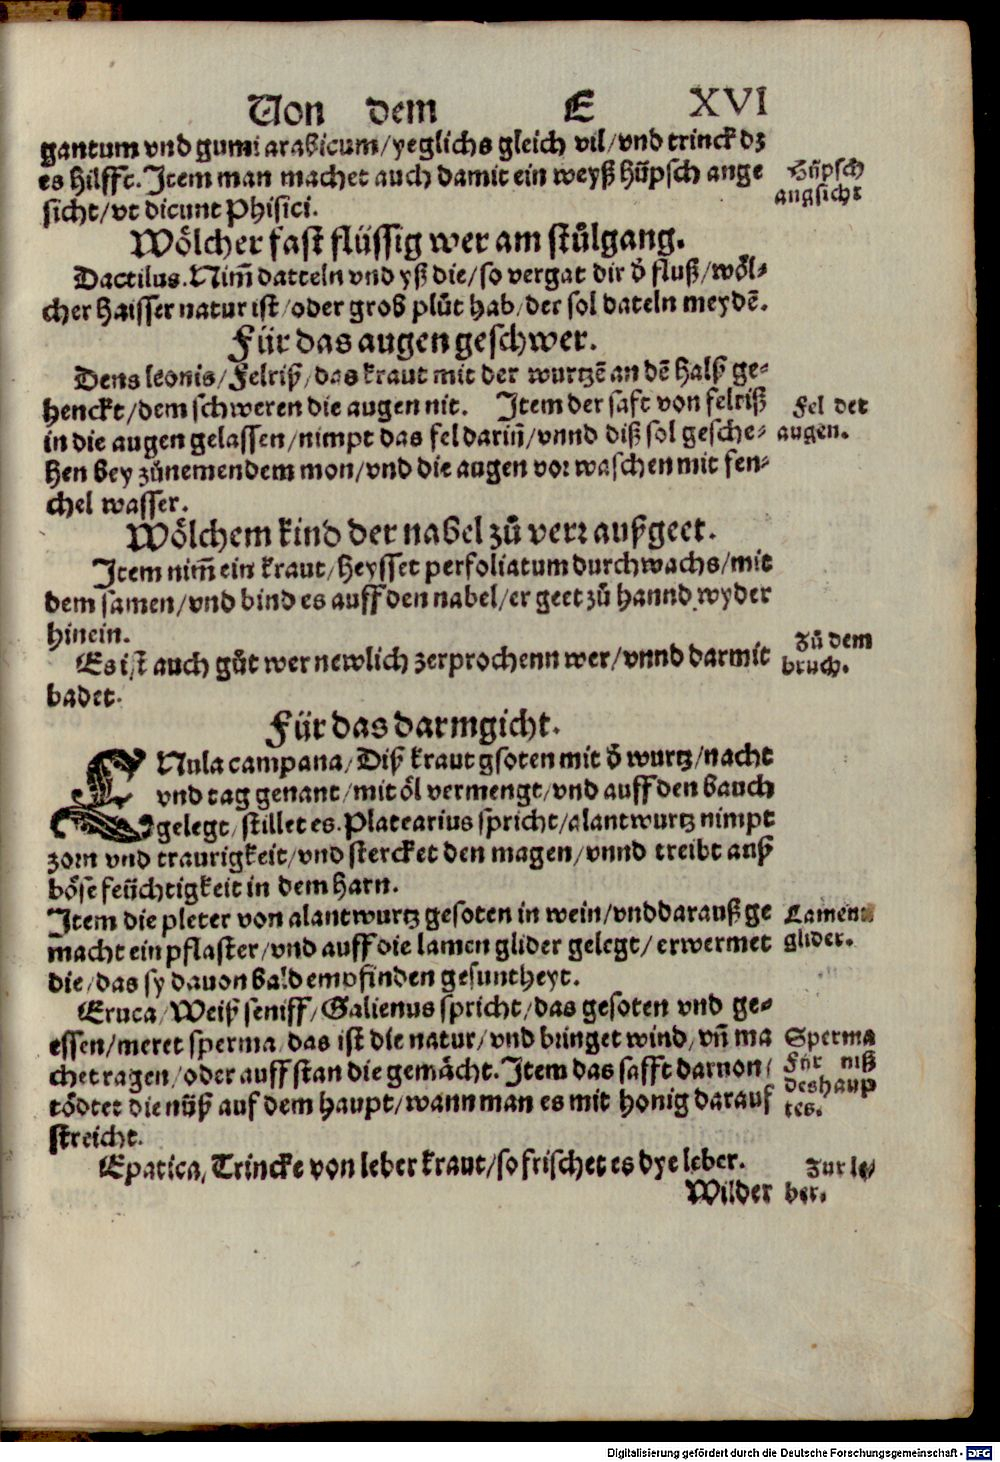 Von dem E XVI
gantum vnd gumi arabicum/yeglichs gleich vil/vnd trinck dz
es hilfft. Item man machet auch damit ein weyß hüpsch ange
sicht/vt dicunt Phisici.
Hüpsch
angsicht
Wölcher fast flüssig wer am stůlgang.
Dactilus. Nim̃ datteln vnd yß die/so vergat dir d̕ fluß/wöl-
cher haisser natur ist/oder grob plůt hab/der sol dateln meydẽ.
Für das augen geschwer.
Dens leonis/Felriß/das kraut mit der wurtzẽ an dẽ halß ge-
henckt/dem schweren die augen nit. Item der saft von felriß
in die augen gelassen/nimpt das fel darin̄/vnnd diß sol gesche-
hen bey zůnemendem mon/vnd die augen vor waschen mit fen-
chel wasser.
Fel der
augen.
Wölchem kind der nabel zů verr außgeet.
Item nim̃ ein kraut/heysset perfoliatum durchwachs/mit
dem samen/vnd bind es auff den nabel/er geet zů hannd wyder
hinein.
Es ist auch gůt wer newlich zerprochenn wer/vnnd darmit
badet.
Zů dem
bruch.
Für das darmgicht.
ENula campana/Diß kraut gsoten mit d̕ wurtz/nacht
vnd tag genant/mit öl vermengt/vnd auff den bauch
gelegt/stillet es. Platearius spricht/alantwurtz nimpt
zorn vnd traurigkeit/vnd stercket den magen/vnnd treibt auß
böse feüchtigkeit in dem harn.
Item die pleter von alantwurtz gesoten in wein/vnd darauß ge
macht ein pflaster/vnd auff die lamen glider gelegt/erwermet
die/das sy dauon bald empfinden gesuntheyt.
Lamen
glider.
Eruca/Weiß seniff/Galienus spricht/das gesoten vnd ge-
essen/meret sperma/das ist die natur/vnd bringet wind/vn̄ ma
chet ragen/oder auff stan die gemächt. Item das safft daruon/
tödtet die nüß auf dem haupt/wann man es mit honig darauf
streicht.
Sperma
Für niß
des haup
tes.
Epatica, Trincke von leber kraut/so frischet es dye leber.
Zur le/
ber.
Wilder
Digitalisierung gefördert durch die Deutsche Forschungsgemeinschaft - DFG